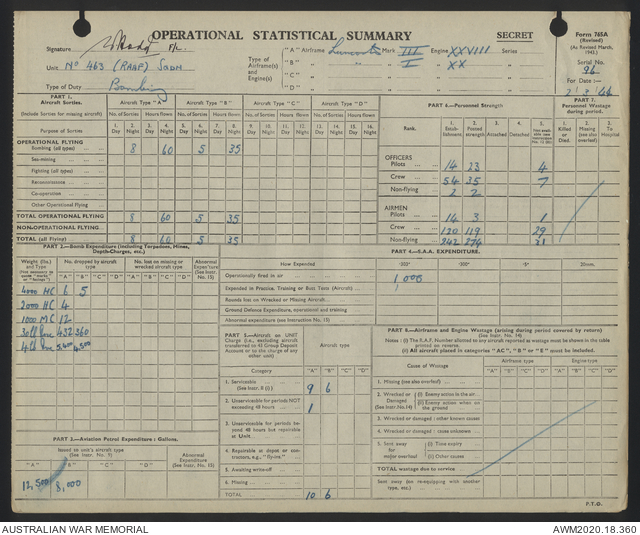 OPERATIONAL STATISTICAL SUMMARY
SECRET
Form 765A
(Revised)
(As Revised March, 1943.)
Serial No.
96
For Date:—
2 3 44
Signature
Unit Nº 463 (RAAF) SQDN
Type of Duty Bombing
Type of Airframe(s) and Engine(s)
"A" Airframe Lancaster Mark III Engine XXVIII Series
"B" " " I " XX "
"C" " " "
"D" " " "
PART 1.
Aircraft Sorties.
(Include Sorties for missing aircraft)
Aircraft Type "A"
Aircraft Type "B"
Aircraft Type "C"
Aircraft Type "D"
No. of Sorties Hours flown No. of Sorties Hours flown No. of Sorties Hours flown No. of Sorties Hours flown
Purpose of Sorties
1. Day 2. Night 3. Day 4. Night 5. Day 6. Night 7. Day 8. Night 9. Day 10. Night 11. Day 12. Night 13. Day 14. Night 15. Day 16. Night
OPERATIONAL FLYING
Bombing (all types) 8 60 5 35
Sea-mining
Fighting (all types)
Reconnaissance
Co-operation
Other Operational Flying
TOTAL OPERATIONAL FLYING 8 60 5 35
NON-OPERATIONAL FLYING
TOTAL (all Flying) 8 60 5 35
PART 6.—Personnel Strength
Rank. 1. Establishment 2. Posted strength 3. Attached 4. Detached 5.
OFFICERS
Pilots 14 23 4
Crew 54 35 7
Non-flying 2 2
AIRMEN
Pilots 14 3 1
Crew 120 119 29
Non-flying 242 274 21
PART 7.
Personnel Wastage during period.
1. Killed or Died 2. Missing (see also overleaf) 3. To Hospital
PART 2.—Bomb Expenditure (including Torpedoes, Mines, Depth-Charges, etc.)
Weight (lbs.) and Type
No. dropped by aircraft type
No. lost on missing or wrecked aircraft type
Abnormal Expenditure (See Instr. 15)
"A" "B" "C" "D" "A" "B" "C" "D"
4000 HC 6 5
2000 HC 4
1000 MC 12
30lb Inc 432 360
4lb Inc 5400 4500
PART 4.—S.A.A. EXPENDITURE.
How Expended ·303" ·50" ·5" 20mm.
Operationally fired in air 1,000
Expended in Practice, Training or Butt Tests (Aircraft)
Rounds lost on Wrecked or Missing Aircraft
Ground Defence Expenditure, operational and training
Abnormal expenditure (see Instruction No. 15)
PART 5.—Aircraft on UNIT Charge (i.e., excluding aircraft transferred to 43 Group Deposit Account or to the charge of any other unit)
Aircraft type
Category "A" "B" "C" "D"
1. Serviceable (See Instr. 8 (i)) 9 6
2. Unserviceable for periods NOT exceeding 48 hours 1
3. Unserviceable for periods beyond 48 hours but repairable at Unit.
4. Repairable at depot or contractors, e.g., "fly-ins."
5. Awaiting write-off
6. Missing
TOTAL 10 6
PART 8.—Airframe and Engine Wastage (arising during period covered by return)
(See Instr. No. 14)
Notes: (i) The R.A.F. Number allotted to any aircraft reported as wastage must be shown in the table printed on reverse.
(ii) All aircraft placed in categories "AC", "B" or "E" must be included.
Cause of Wastage
Airframe type "A" "B" "C" "D"
Engine type "A" "B" "C" "D"
1. Missing (see also overleaf)
2. Wrecked or Damaged (See Instr. No.14) (i) Enemy action in the air
(ii) Enemy action on the ground
3. Wrecked or damaged: other known causes
4. Wrecked or damaged: cause unknown
5. Sent away for major overhaul (i) Time expiry
(ii) Other causes
TOTAL wastage due to service
Sent away (on re-equipping with another type, etc.)
PART 3.—Aviation Petrol Expenditure: Gallons.
Issued to unit's aircraft type (See Instr. No. 9)
Abnormal Expenditure (See Instr. No. 15)
"A" "B" "C" "D"
12,500 8,000
P.T.O.
AUSTRALIAN WAR MEMORIAL
AWM2020.18.360